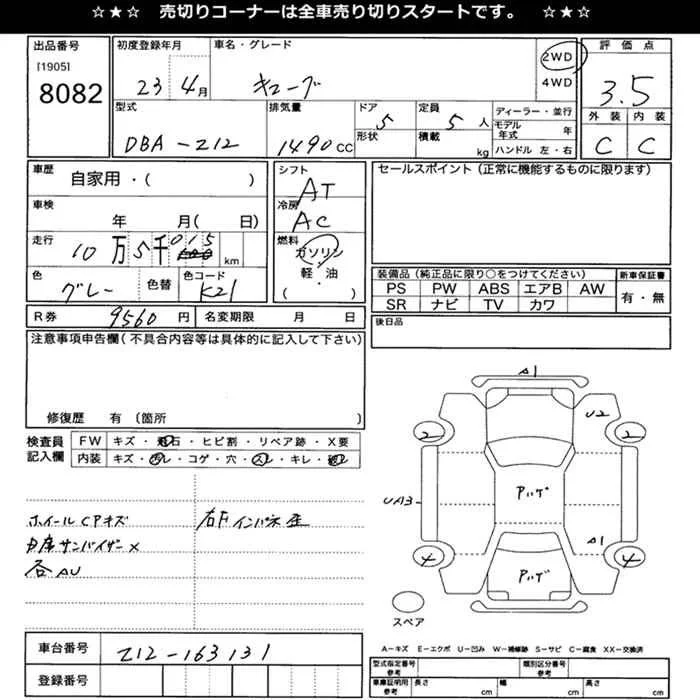 ☆★☆ 売切りコーナーは全車売り切りスタートです。 ☆★☆
出品番号
[1905]
8082
初度登録年月
23年4月
車名・グレード
キューブ
2WD
4WD
評価点
3.5
外装 内装
C C
型式
DBA-Z12
排気量
1490CC
ドア
5
形状
定員
5人
積載
kg
ディーラー・並行
モデル年式 年
ハンドル 左・右
車歴
自家用・( )
車検
年 月( 日)
走行
10万5千015km
色
グレー
色替
色コード
K21
シフト
AT
冷房
AC
燃料
ガソリン
軽・油
( )
セールスポイント(正常に機能するものに限ります)
装備品(純正品に限り○をつけてください)
PS PW ABS エアB AW
SR ナビ TV カワ
新車保証書
有・無
後日品
R券 9560円
名変期限 月 日
注意事項申告欄(不具合内容等は具体的に記入して下さい)
修復歴 有(箇所 )
検査員記入欄
FW キズ・飛石・ヒビ割・リペア跡・X要
内装 キズ・汚レ・コゲ・穴・スレ・キレ・
ホイールCPキズ
サンバイザーX
各AU
右F インパネ
A1
U2
2
2
UA3
アハゲ
A1
4
4
アハゲ
スペア
A-キズ E-エクボ U-凹み W-補修跡 S-サビ C-腐食 XX-交換済
車台番号
Z12-163131
登録番号
型式指定番号
参考
類別区分番号
参考
車庫証明用
参考
長さ cm 幅 cm 高さ cm